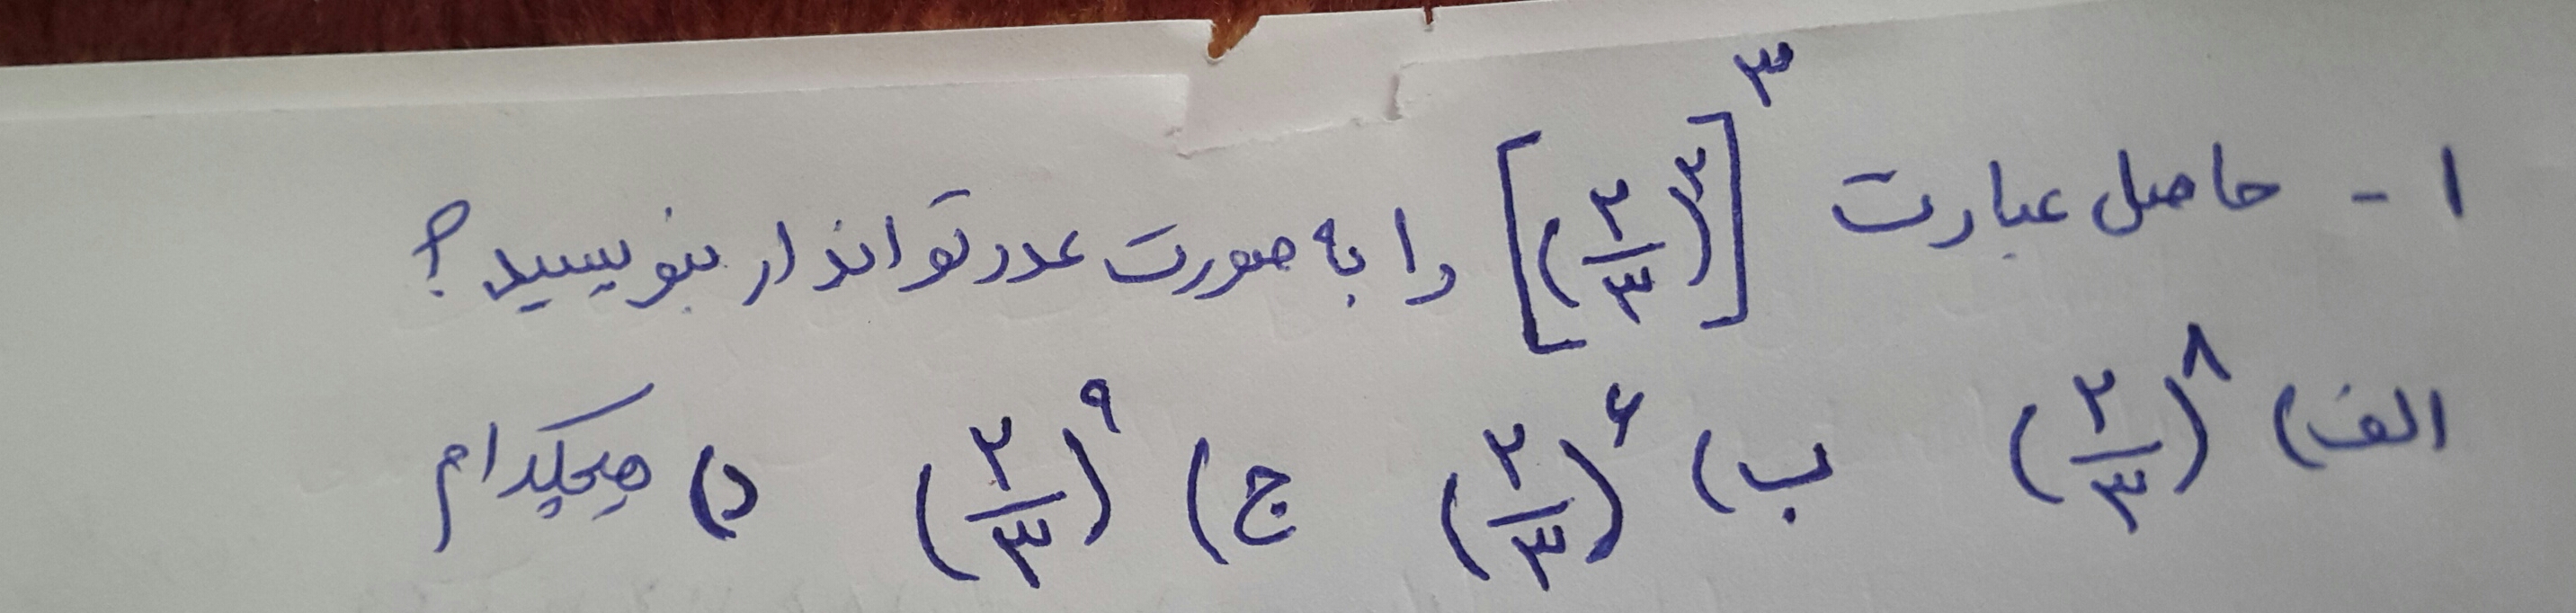 ۱- حاصل عبارت [(۲/۳)^۲]^۳ را به صورت عدد تواندار بنویسید؟
الف) (۲/۳)^۸ ب) (۲/۳)^۶ ج) (۲/۳)^۹ د) هیچکدام